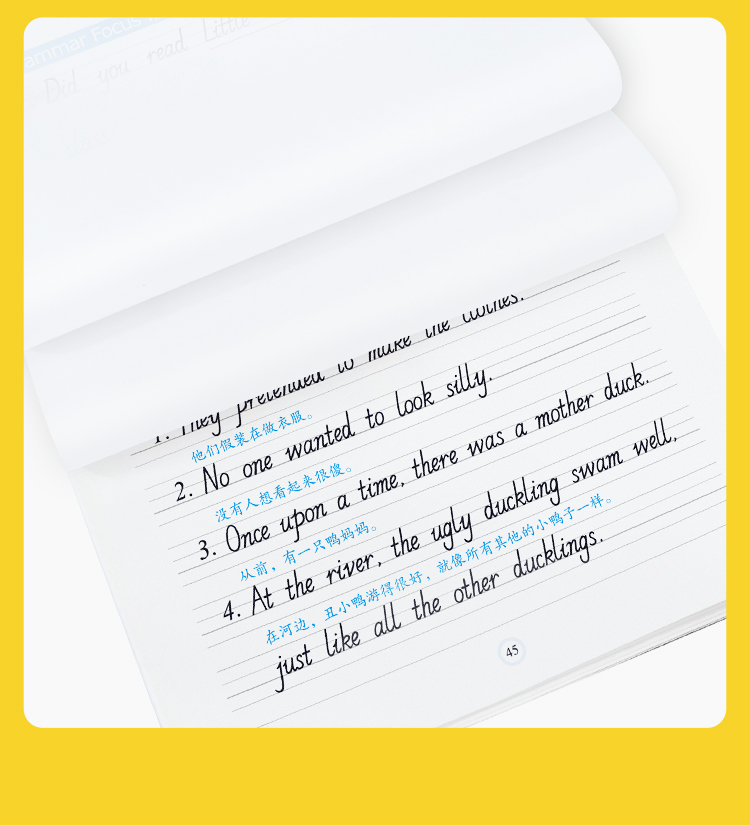 Grammar Focus
Did you read Little
1. They pretended to make the clothes.
他们假装在做衣服。
2. No one wanted to look silly.
没有人想看起来很傻。
3. Once upon a time, there was a mother duck.
从前，有一只鸭妈妈。
4. At the river, the ugly duckling swam well,
在河边，丑小鸭游得很好，就像所有其他的小鸭子一样。
just like all the other ducklings.
45